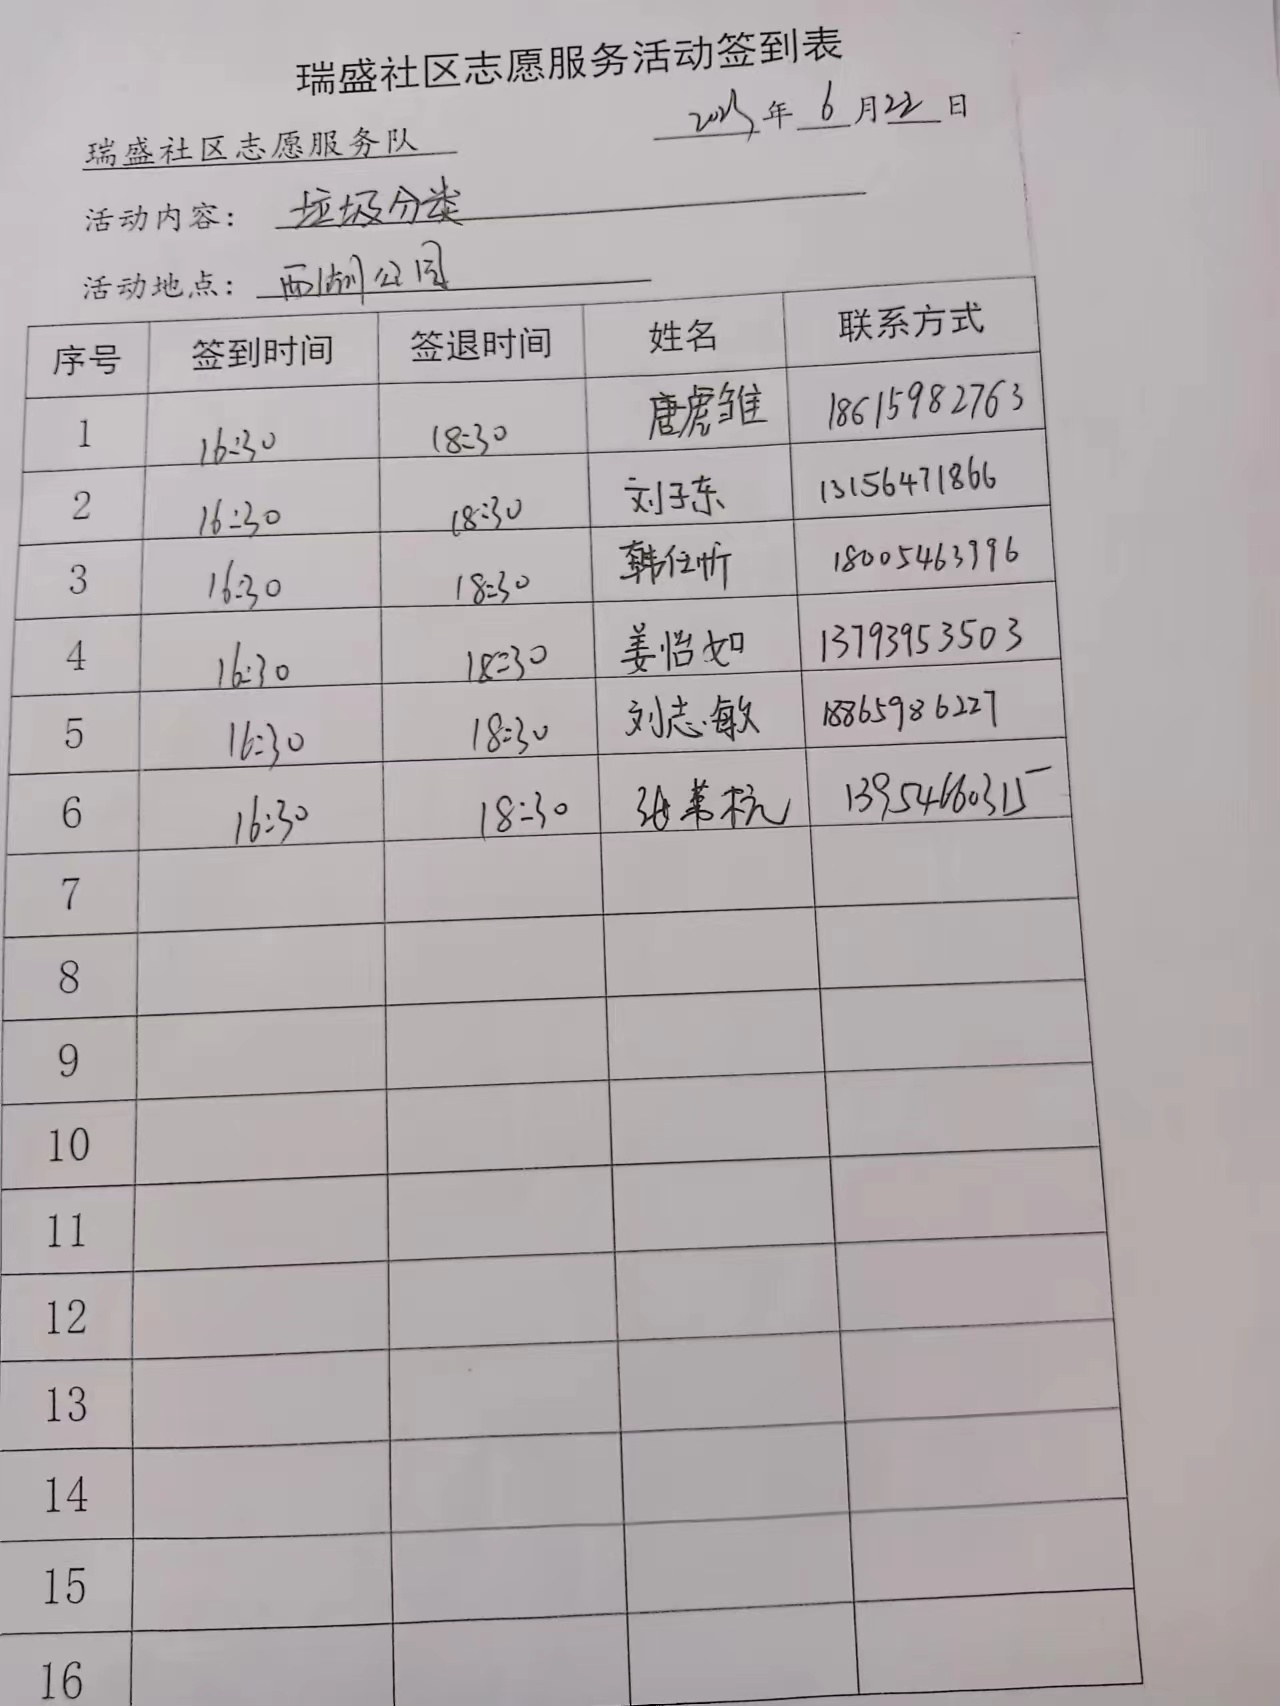 瑞盛社区志愿服务活动签到表
2023年 6 月22日
瑞盛社区志愿服务队
活动内容： 垃圾分类
活动地点： 西湖公园
序号 签到时间 签退时间 姓名 联系方式
1 16:30 18:30 唐虎雏 18615982763
2 16:30 18:30 刘子东 13156471866
3 16:30 18:30 韩任忻 18005463996
4 16:30 18:30 姜怡如 13793953503
5 16:30 18:30 刘志敏 18865986227
6 16:30 18:30 张 杭 13954660315
7
8
9
10
11
12
13
14
15
16